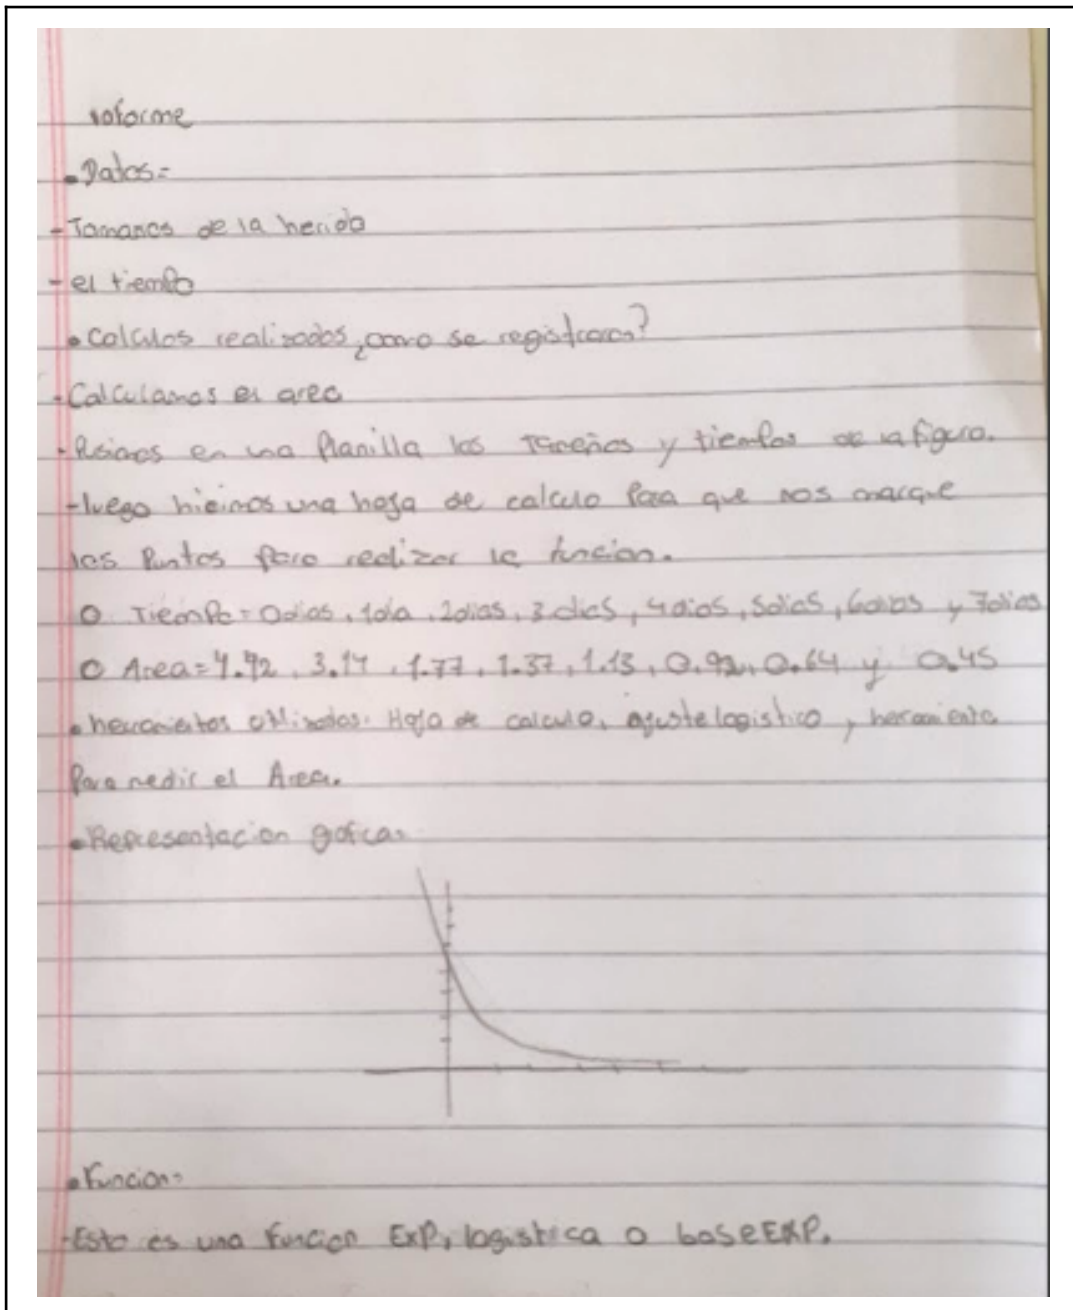 informe
• Datos=
- Tamanos de la herida
- el tiempo
• Calculos realizados, ¿como se registraron?
- Calculamos el area
- Pusimos en una Planilla los Tameños y tiempos de la figura.
- luego hicimos una hoja de calculo Para que nos marque
los Puntos para realizar la funcion.
O Tiempo= 0dias, 1dia, 2dias, 3 dias, 4dias, 5dias, 6dias y 7dias
O Area= 4.92, 3.14, 1.77, 1.37, 1.13, 0.92, 0.64 y 0.45
• herramientas utilizadas: Hoja de calculo, ajuste logistico, herramienta
Para medir el Area.
• Representacion grafica=
• Funcion=
- Esto es una funcion EXP, logistica o base EXP.